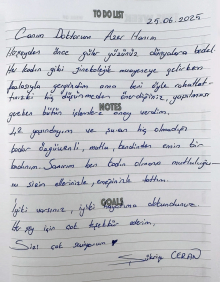 TO DO LIST
25.06.2025
Canım Doktorum Azer Hanım
Herşeyden önce güler yüzünüz dünyalara bedel
Her kadın gibi jinekolojik muayeneye gelirken
fazlasıyla gergindim ama beni öyle rahatlat-
tınız ki hiç düşünmeden önerdiğiniz, yapılması
gereken bütün işlemlere onay verdim.
NOTES
42 yaşındayım ve şu an hiç olmadığı
kadar özgüvenli, mutlu, kendinden emin bir
kadınım. Sanırım ben kadın olmanın mutluluğu-
nu sizin ellerinizle, enerjinizle tattım.
GOALS
İyiki varsınız, iyiki hayatıma dokundunuz.
Her şey için çok teşekkür ederim.
Sizi çok seviyorum ♥
CERAN